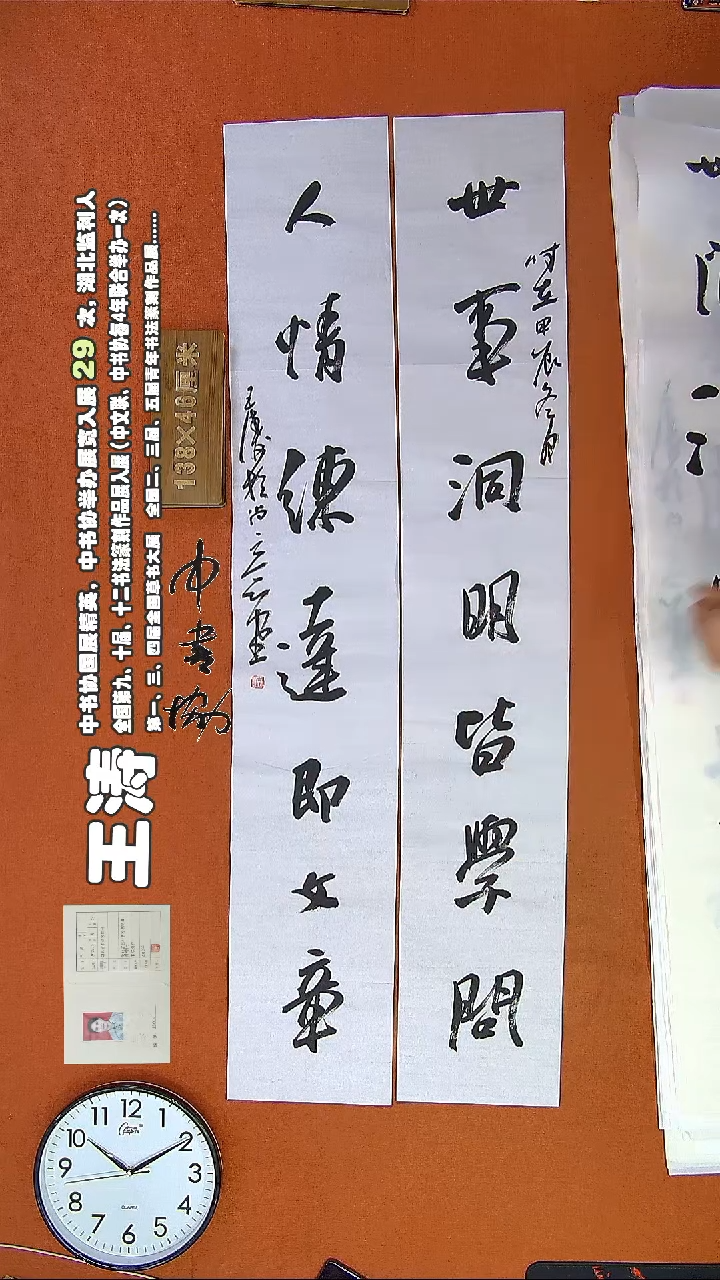 世事洞明皆學問
时在甲辰冬月
人情練達即文章
王涛於
138×46厘米
中書協
王涛
中书协国展精英，中书协举办展览入展29次，湖北监利人
全国第九、十届、十二书法篆刻作品展入展（中文联、中书协每4年联合举办一次）
第一、三、四届全国草书大展 全国二、三届、五届青年书法篆刻作品展......
12
1
2
3
4
5
6
7
8
9
10
11
QUARTZ